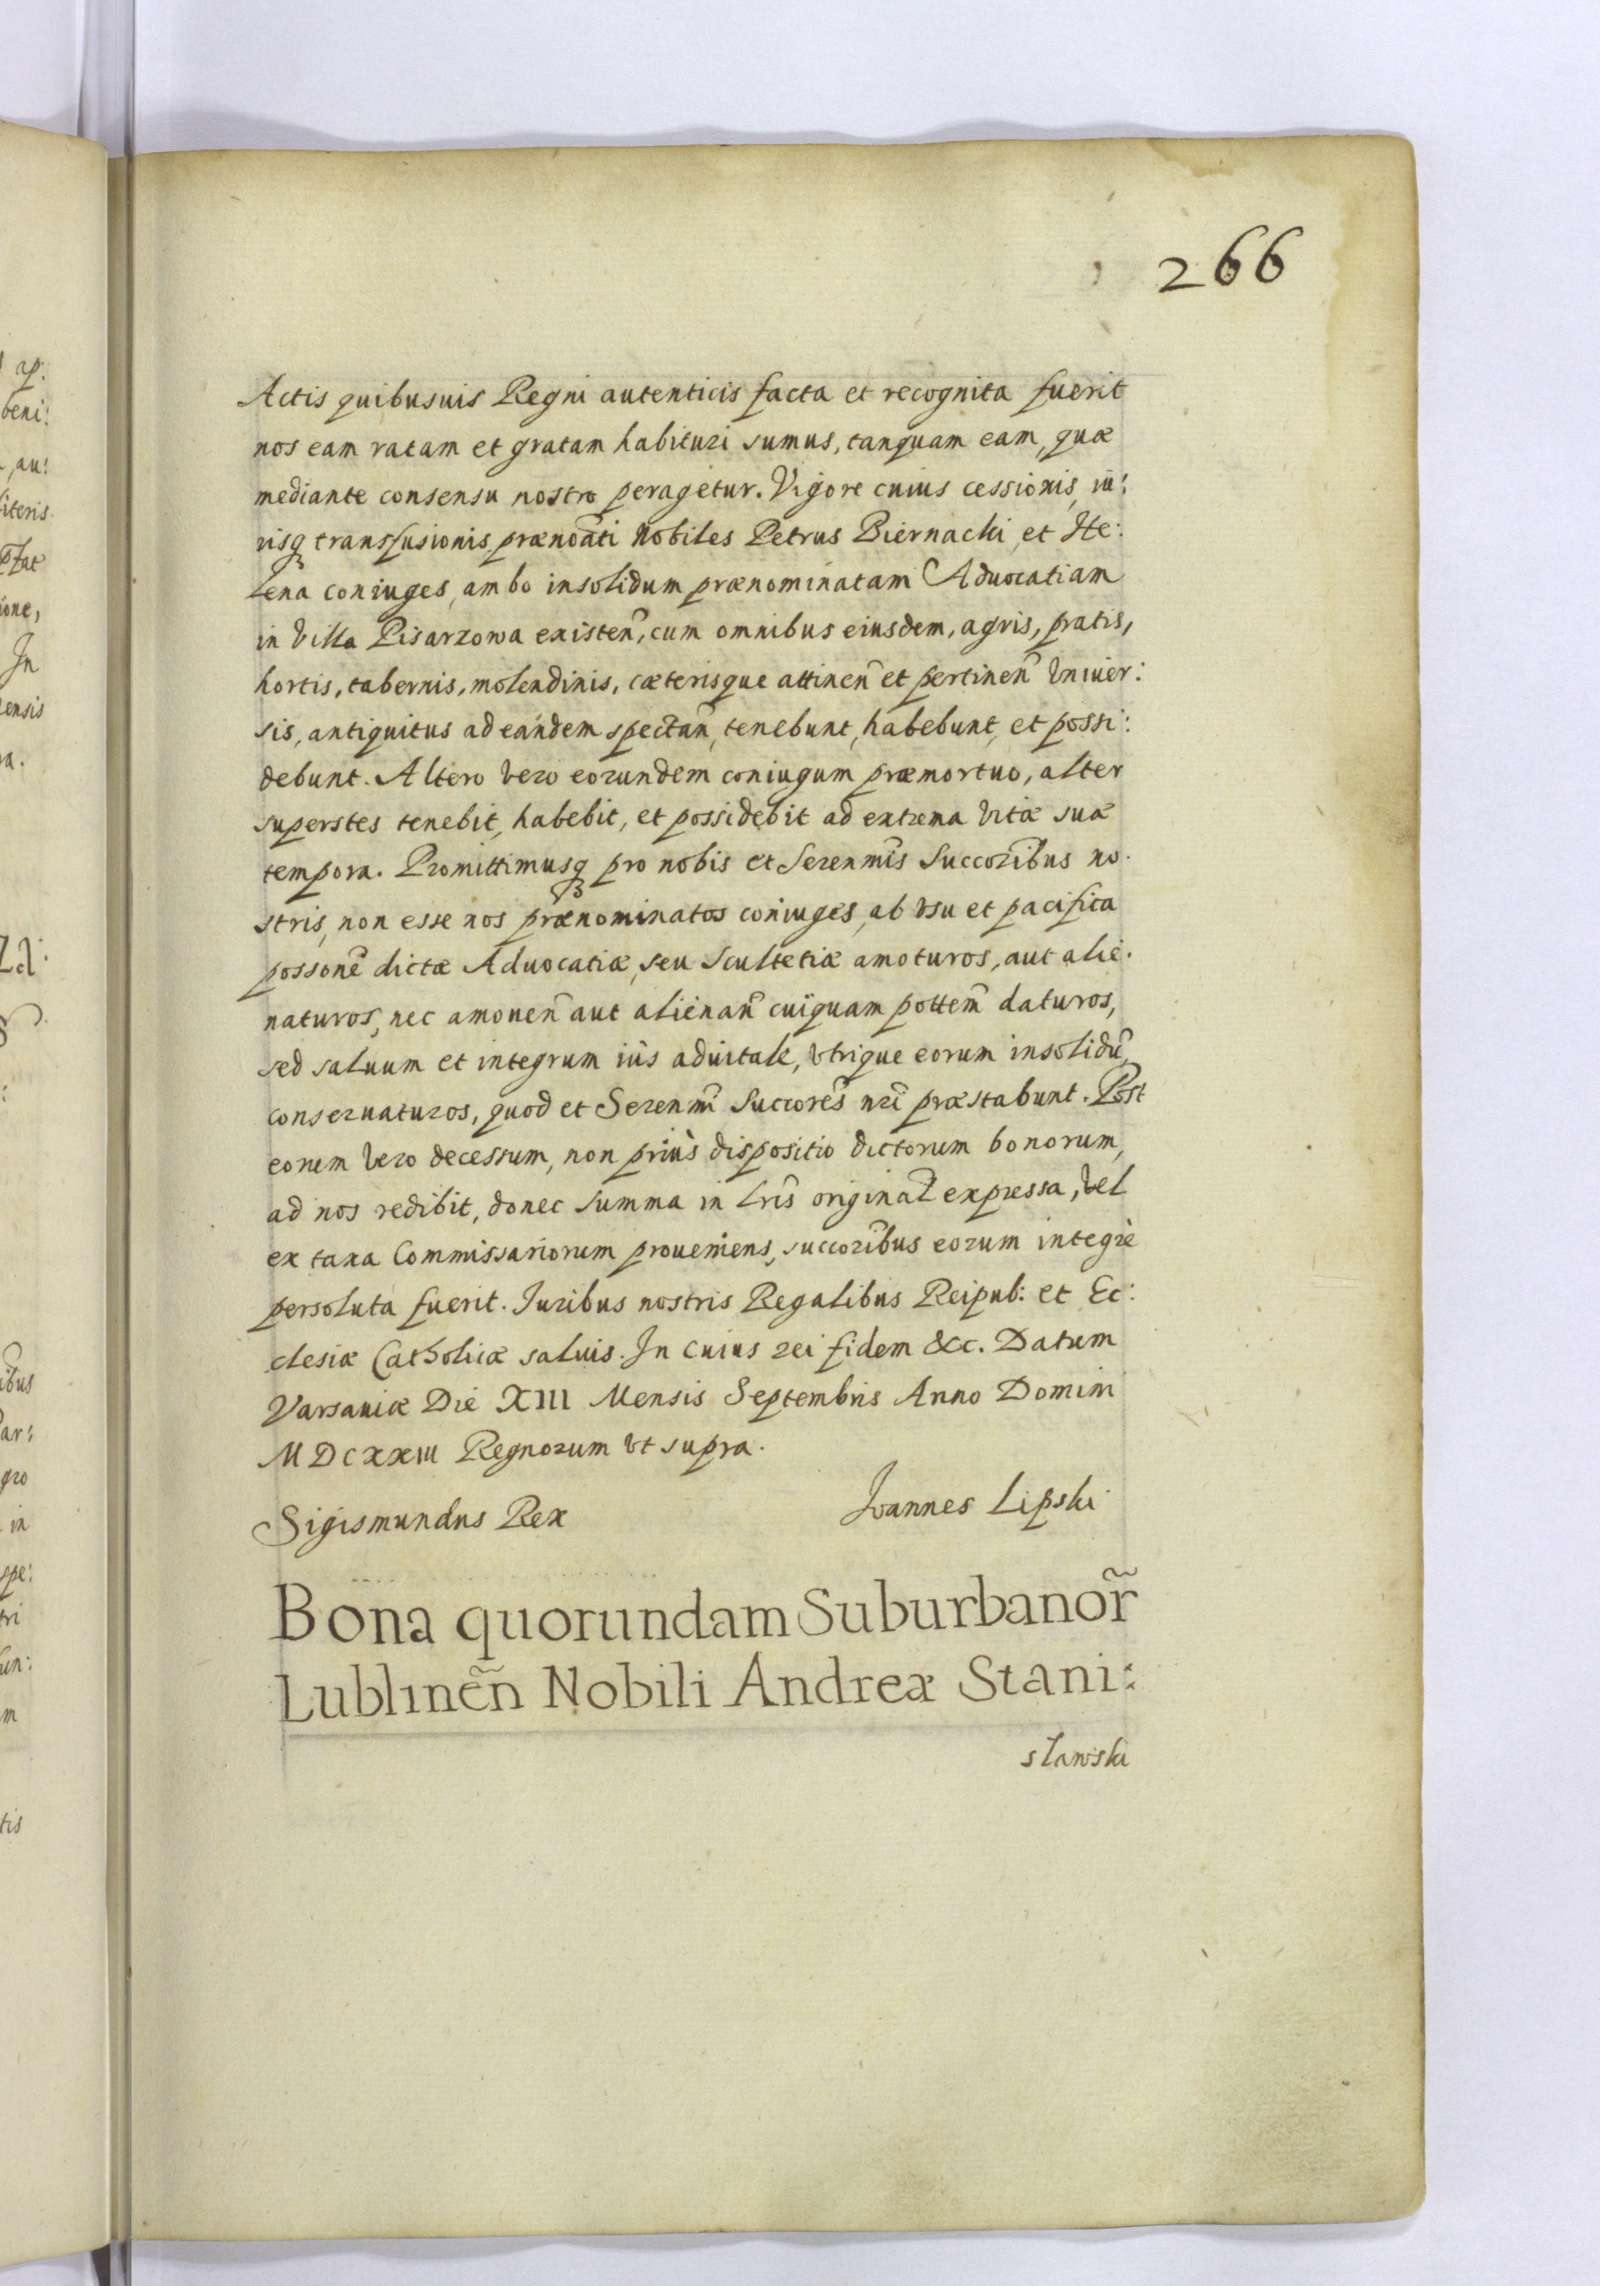 266
Actis quibusuis Regni autenticis facta et recognita fuerit
nos eam ratam et gratam habituri sumus, tanquam eam, quæ
mediante consensu nostro peragetur. Vigore cuius cessionis, iu:
risq̃ transfusionis prænoãti Nobiles Petrus Biernacki et He:
lena coniuges, ambo insolidum prænominatam Aduocatiam
in Villa Pisarzowa existeñ, cum omnibus eiusdem, agris, pratis,
hortis, tabernis, molendinis, cæterisque attineñ et pertineñ Vniuer:
sis, antiquitus ad eandem spectañ, tenebunt, habebunt, et possi:
debunt. Altero vero eorundem coniugum præmortuo, alter
superstes tenebit, habebit, et possidebit ad extrema vitæ suæ
tempora. Promittimusq̃ pro nobis et Serenm̃is Succorĩbus no.
stris, non esse nos prænominatos coniuges, ab vsu et pacifica
possonẽ dictæ Aduocatiæ, seu Scultetiæ amoturos, aut alie.
naturos, nec amoueñ aut alienañ cuiquam pottem̃ daturos,
sed saluum et integrum iùs aduitale, vtrique eorum insolidũ,
conseruaturos, quod et Serenm̃i Succorẽs nr̃i præstabunt. Post
eorum vero decessum, non priùs dispositio dictorum bonorum,
ad nos redibit, donec summa in Lr̃is original̃ expressa, vel
ex taxa Commissariorum proueniens, succorĩbus eorum integrè
persoluta fuerit. Iuribus nostris Regalibus Reipub: et Ec:
clesiæ Catholicæ saluis. In cuius rei fidem &c. Datum
Varsauiæ Die XIII Mensis Septembris Anno Domini
MDCXXIII Regnorum vt supra.
Sigismundus Rex Ioannes Lipski
Bona quorundam Suburbanor̃
Lublineñ Nobili Andreæ Stani:
slawski